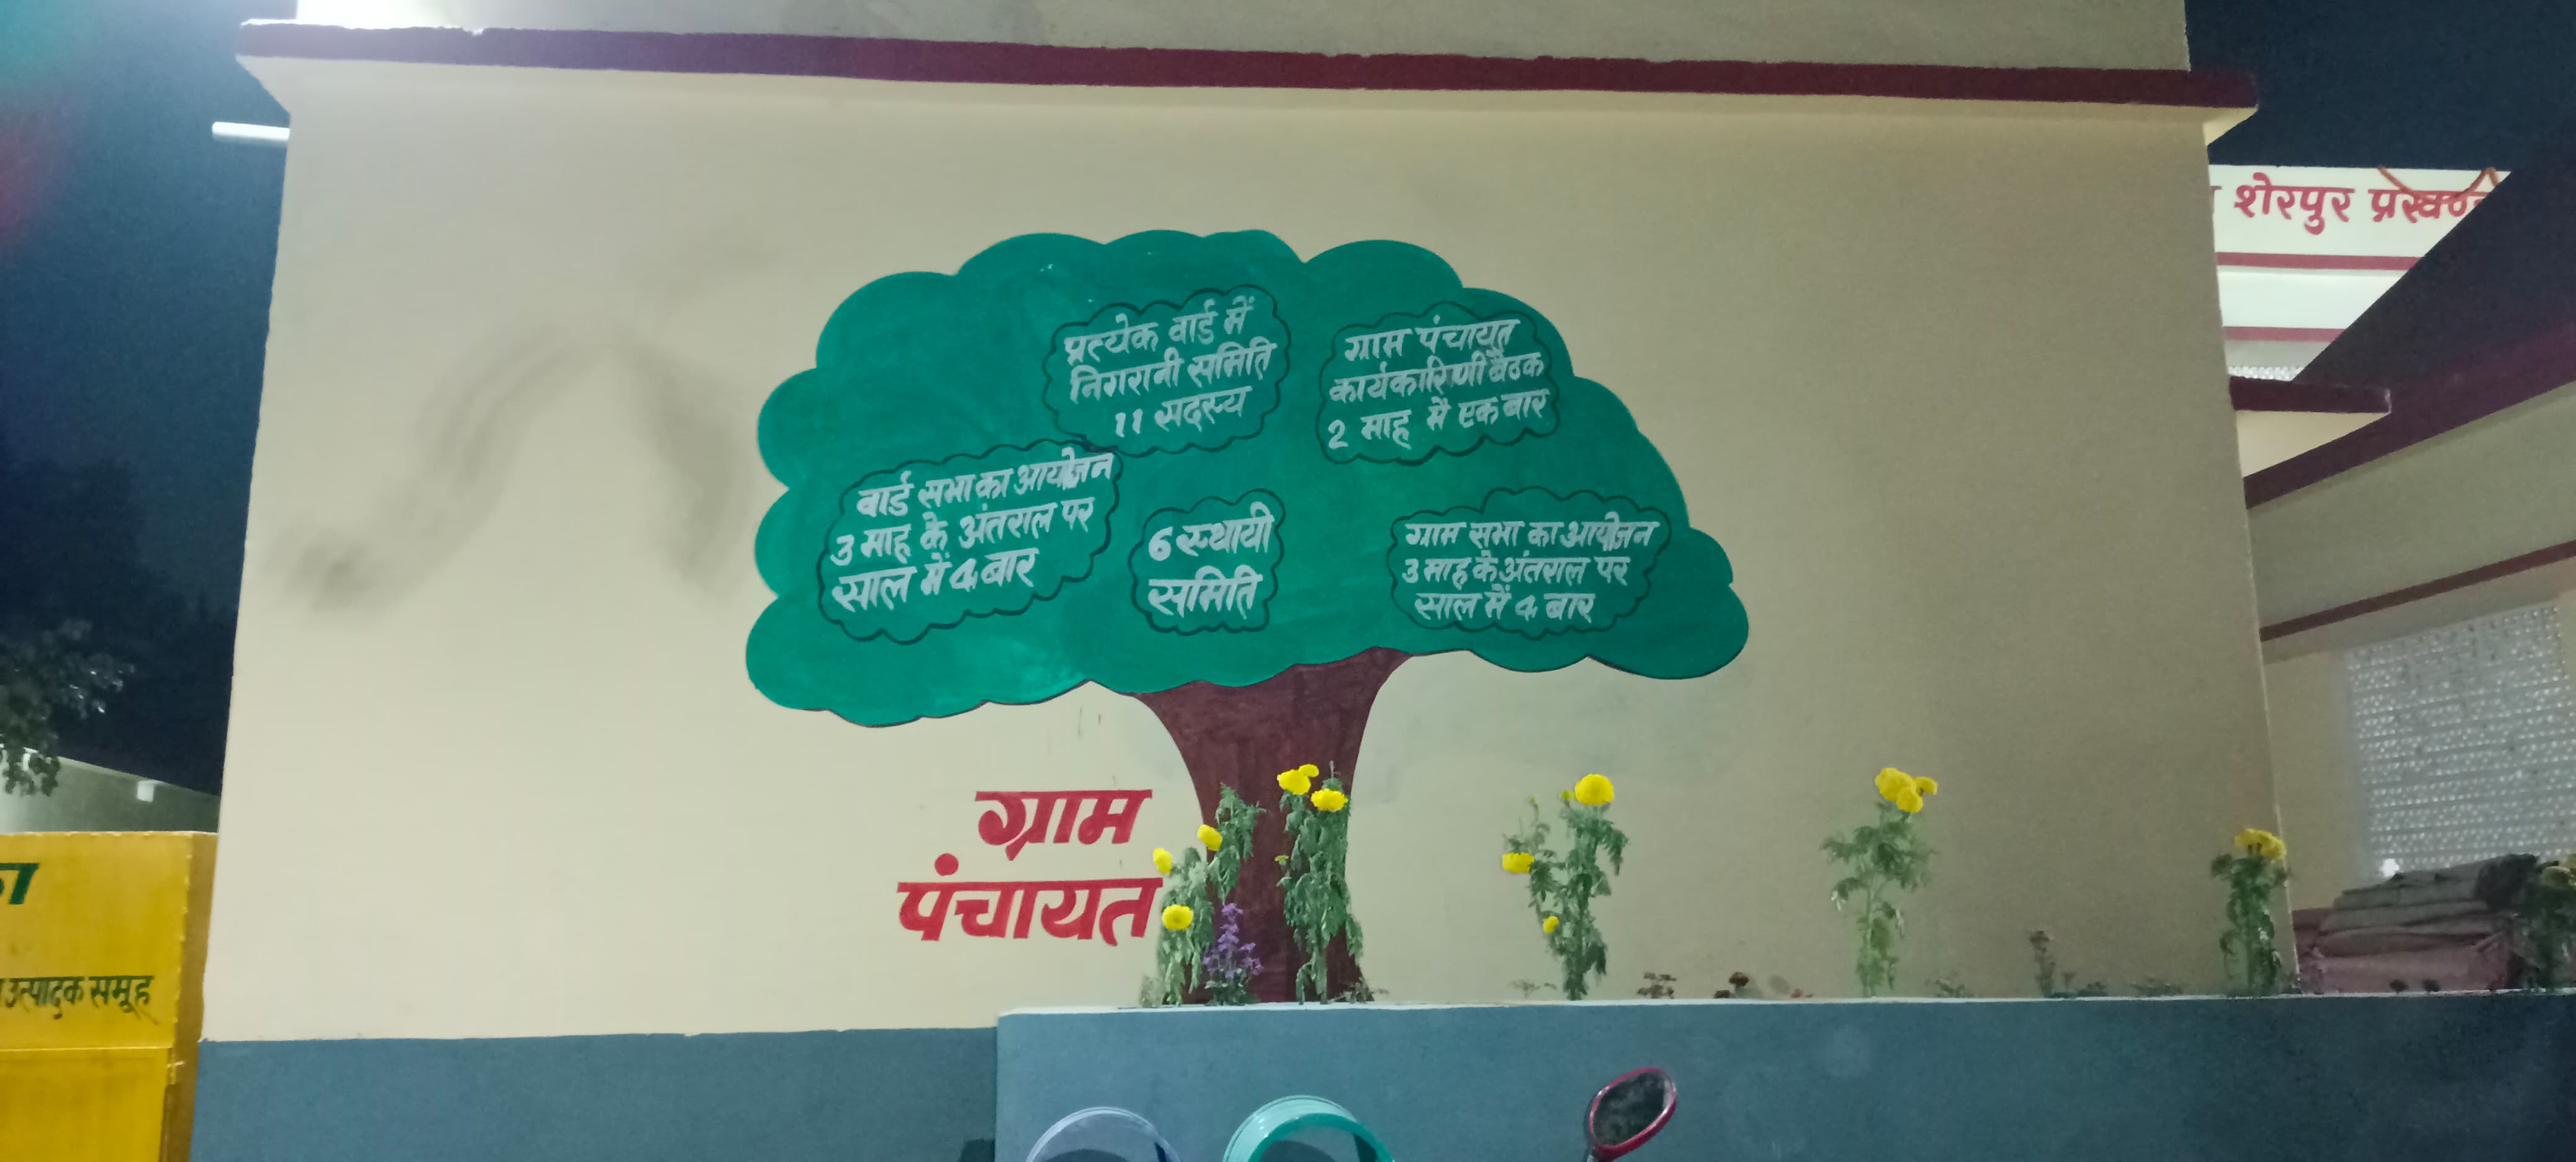 शेरपुर प्रखण्ड
प्रत्येक वार्ड में
निगरानी समिति
11 सदस्य
ग्राम पंचायत
कार्यकारिणी बैठक
2 माह में एक बार
वार्ड सभा का आयोजन
3 माह के अंतराल पर
साल में 4 बार
6 स्थायी
समिति
ग्राम सभा का आयोजन
3 माह के अंतराल पर
साल में 4 बार
ग्राम
पंचायत
उत्पादक समूह